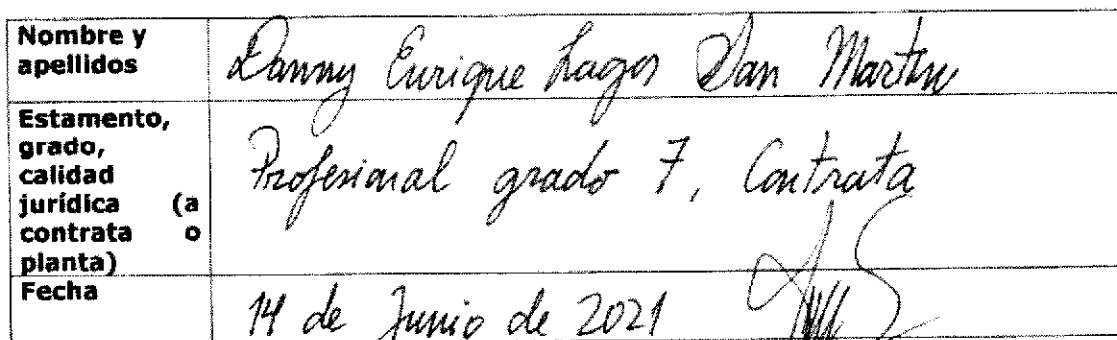 Nombre y
apellidos
Danny Enrique Lagos San Martin
Estamento,
grado,
calidad
jurídica (a
contrata o
planta)
Profesional grado 7, Contrata
Fecha
14 de Junio de 2021